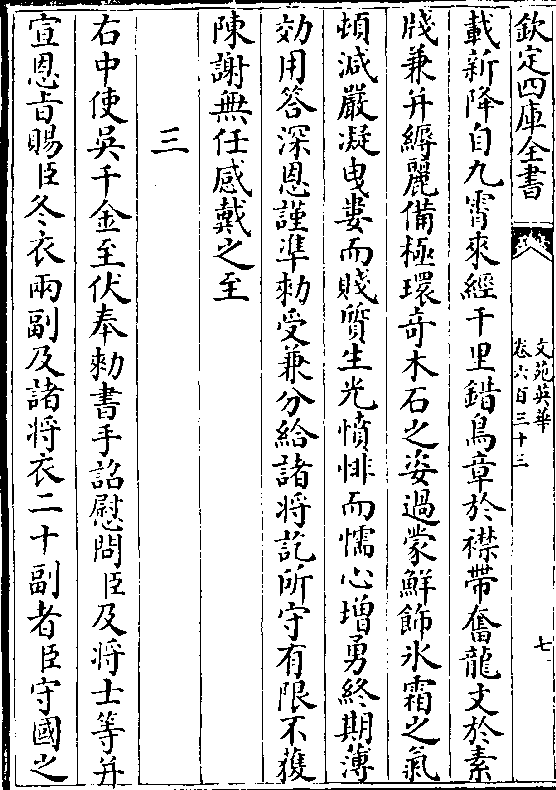 欽定四庫全書
文苑英華
卷六百三十三
七
載新降自九霄來經千里錯鳥章於襟帶奮龍文於素
牋兼并縟麗備極環奇木石之姿過蒙鮮飾氷霜之氣
頓減嚴凝曳婁而賤質生光憤悱而懦心增勇終期薄
効用答深恩謹準勑受兼分給諸將訖所守有限不獲
陳謝無任感戴之至
三
右中使吳千金至伏奉勑書手詔慰問臣及將士等并
宣恩旨賜臣冬衣兩副及諸將衣二十副者臣守國之